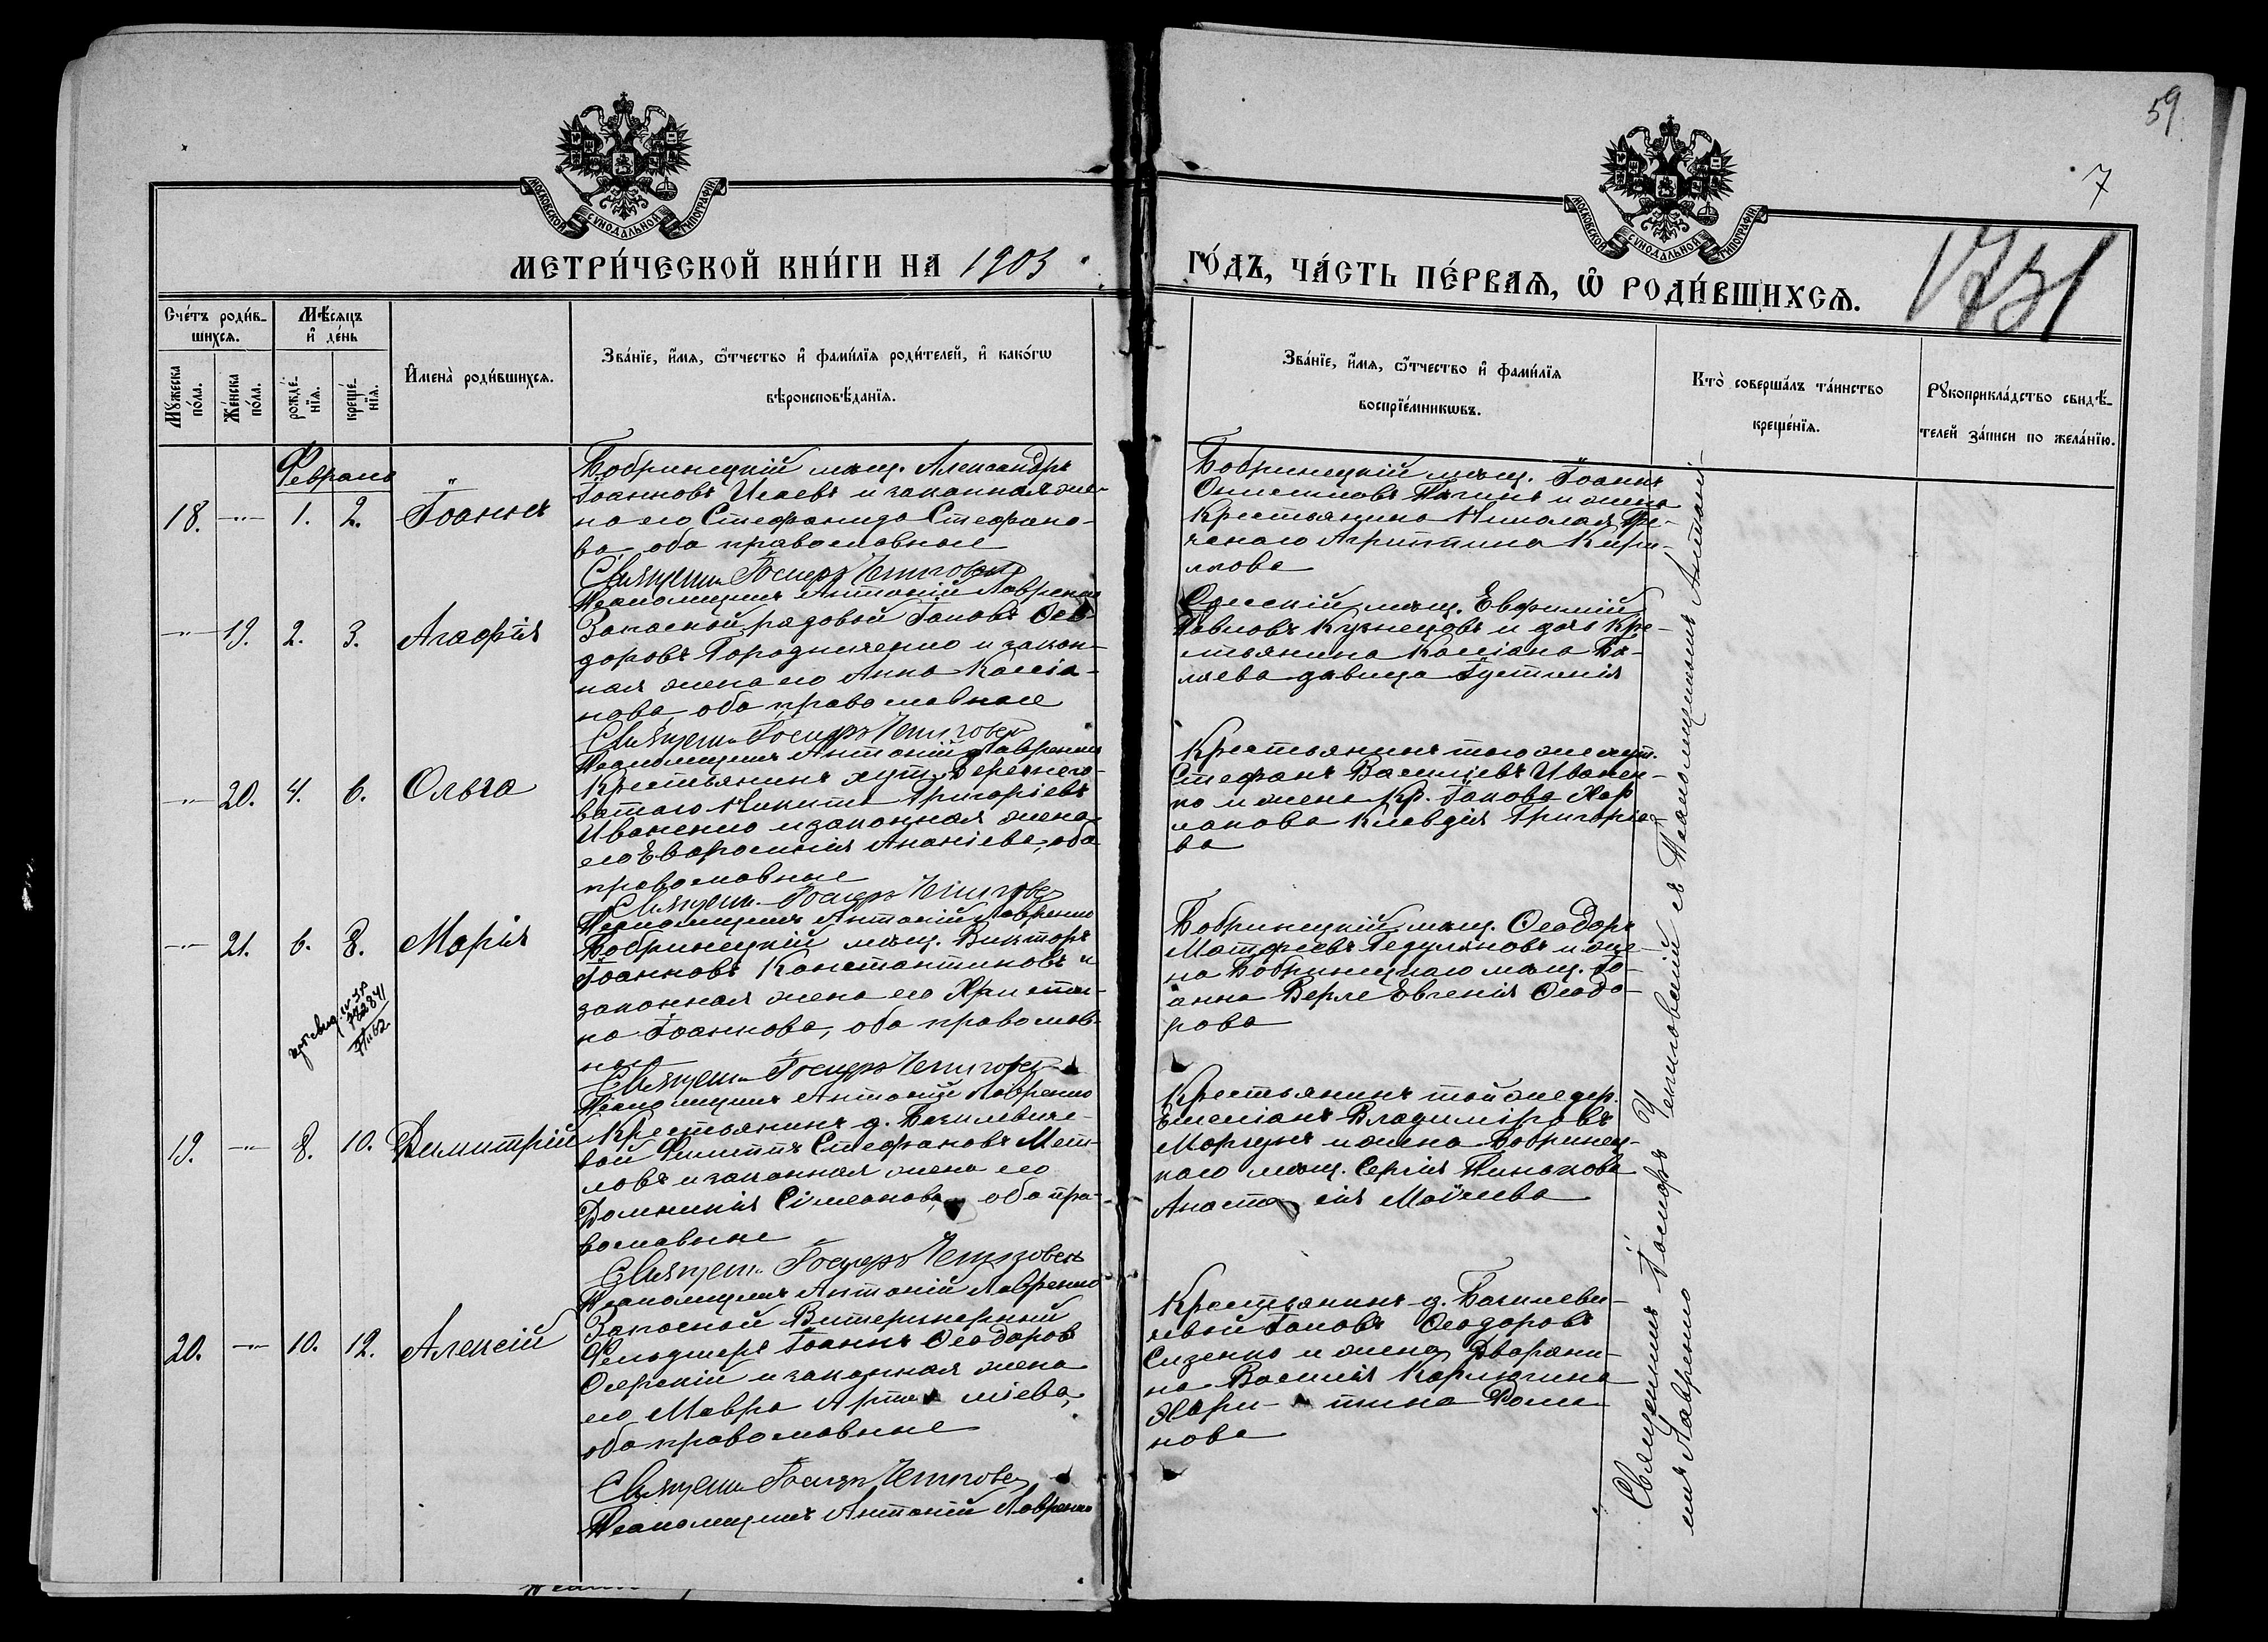 59
7
1731
МОСКОВСКОЙ СѴНОДАЛЬНОЙ ТИПОГРАФІИ
МОСКОВСКОЙ СѴНОДАЛЬНОЙ ТИПОГРАФІИ
МЕТРИ́ЧЕСКОЙ КНИ́ГИ НА 1903
ГО́ДЪ, ЧА́СТЬ ПЕ́РВАѦ, Ѡ РОДИ́ВШИХСѦ.
Сче́тъ роди́в-
шихсѧ.
Мѣ́сѧцъ
и҆ де́нь
Мꙋ́жеска
по́ла.
Же́нска
по́ла.
рожде́-
нїѧ.
креще́-
нїѧ.
И҆мена̀ роди́вшихсѧ.
Зва́нїе, и҆́мѧ, ѻ҆́тчество и҆ фами́лїѧ роди́телей, и҆ како́гѡ
вѣроисповѣ́данїѧ.
Зва́нїе, и҆́мѧ, ѻ҆́тчество и҆ фами́лїѧ
воспрїе́мникѡвъ.
Кто̀ соверша́лъ та́инство
креще́нїѧ.
Рꙋкоприкла́дство свидѣ́-
телей за́писи по жела́нїю.
Февраль
18. -"- 1. 2. Іоаннъ
Бобринецкій мѣщ. Александръ
Іоанновъ Исаевъ и законная же-
на его Стефанида Стефано-
ва, оба православные
Священн. Іосифъ Чепиговскій
Псаломщикъ Антоній Лавренко
Бобринецкій мѣщ. Іоаннъ
Онисимовъ и жена
Крестьянина Николая Гре-
ченаго Агриппина Кири-
лова
-"- 19. 2. 3. Агафія
Запасной рядовой Іаковъ Ѳео-
доровъ Городниченко и закон-
ная жена его Анна Кассіа-
нова, оба православные
Священн. Іосифъ Чепиговскій
Псаломщикъ Антоній Лавренко
Одесскій мѣщ. Евфимій
Павловъ Кузнецовъ и дочь Кре-
стьянина Кассіана Бѣ-
ляева дѣвица Іустинія
-"- 20. 4. 6. Ольга
Крестьянинъ хут. Веречего-
ватаго Никита Григоріевъ
Иваненко и законная жена
его Евфросинія Ананіева, оба
православные
Священн. Іосифъ Чепиговскій
Псаломщикъ Антоній Лавренко
Крестьянинъ того же хут.
Стефанъ Василіевъ Иванен-
ко и жена Кр. Іакова Хар
лакова Клавдія Григоріе-
ва
-"- 21. 6. 8. Марія
Бобринецкій мѣщ. Викторъ
Іоанновъ Константиновъ и
законная жена его Христи-
на Іоаннова, оба православ-
ные
Священн. Іосифъ Чепиговскій
Псаломщикъ Антоній Лавренко
Бобринецкій мѣщ. Ѳеодоръ
Матѳіевъ Гедуляновъ и же-
на Бобринецкаго мѣщ. Іо-
анна Верле Евгенія Ѳеодо-
рова
19. -"- 8. 10. Димитрій
Крестьянинъ д. Базилевиче-
вой Филиппъ Стефановъ Мет-
ловъ и законная жена его
Домникія Сімеонова, оба пра-
вославные
Священн. Іосифъ Чепиговскій
Псаломщикъ Антоній Лавренко
Крестьянинъ той же дер.
Емеліанъ Владиміровъ
Моргунъ и жена Бобринец-
каго мѣщ. Сергія Пинькова
Анастасія Моѵсеева
20. -"- 10. 12. Алексій
Запасной Ветеринарный
Фельдшеръ Іоаннъ Ѳеодоровъ
Озерскій и законная жена
его Мавра Артеміева,
оба православные
Священн. Іосифъ Чепиговскій
Псаломщикъ Антоній Лавренко
Крестьянинъ д. Базилеви-
чевой Іаковъ Ѳеодоровъ
Сизенко и жена Дворяни-
на Василія Карлючина
Харитина Рома
нова
Священникъ Іосифъ Чепиговскій съ Псаломщикомъ Антоні-
емъ Лавренко